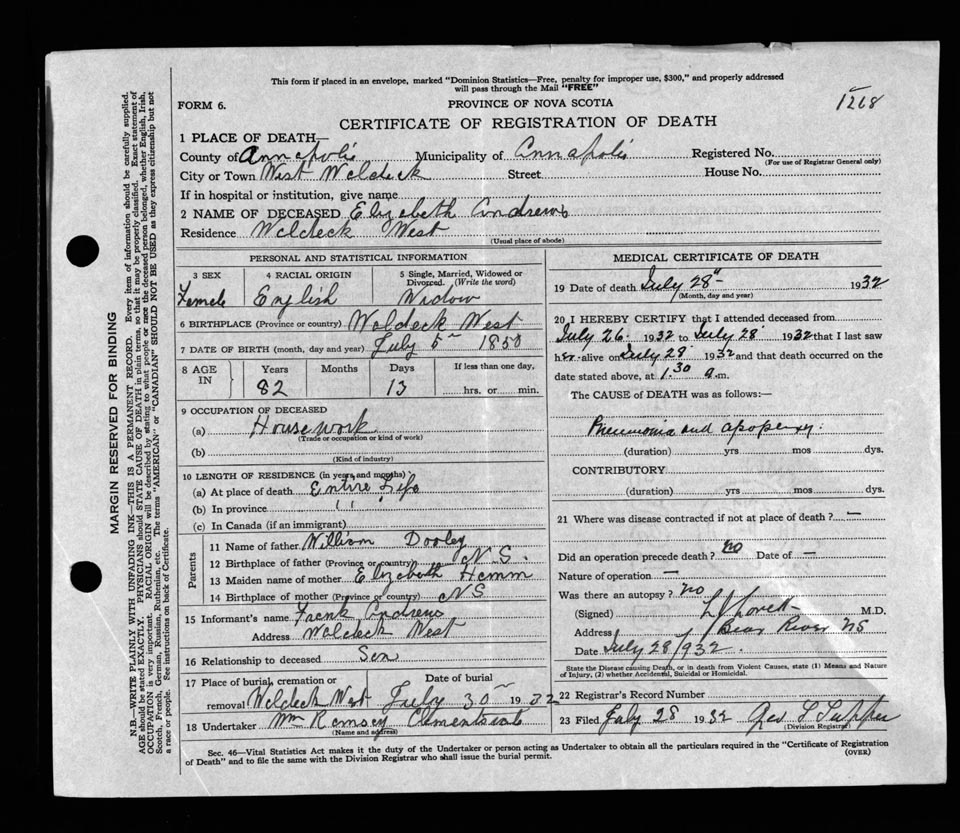 This form if placed in an envelope, marked "Dominion Statistics—Free, penalty for improper use, $300," and properly addressed
will pass through the Mail "FREE"
FORM 6.
PROVINCE OF NOVA SCOTIA
1268
CERTIFICATE OF REGISTRATION OF DEATH
1 PLACE OF DEATH—
County of Annapolis Municipality of Annapolis Registered No.
(For use of Registrar General only)
City or Town West Waldeck Street House No.
If in hospital or institution, give name
2 NAME OF DECEASED Elizabeth Andrews
Residence Waldeck West
(Usual place of abode)
PERSONAL AND STATISTICAL INFORMATION
3 SEX 4 RACIAL ORIGIN 5 Single, Married, Widowed or Divorced. (Write the word)
Female English Widow
6 BIRTHPLACE (Province or country) Waldeck West
7 DATE OF BIRTH (month, day and year) July 5 1850
8 AGE IN Years Months Days If less than one day,
82 13 hrs. or min.
9 OCCUPATION OF DECEASED
(a) Housework
(Trade or occupation or kind of work)
(b)
(Kind of industry)
10 LENGTH OF RESIDENCE (in years and months)
(a) At place of death Entire Life
(b) In province " "
(c) In Canada (if an immigrant)
Parents
11 Name of father William Dooley
12 Birthplace of father (Province or country) N.S.
13 Maiden name of mother Elizabeth Hamm
14 Birthplace of mother (Province or country) NS
15 Informant's name Frank Andrews
Address Waldeck West
16 Relationship to deceased Son
17 Place of burial, cremation or removal Date of burial
Waldeck West July 30 1932
18 Undertaker Wm Ramsey Clementsvale
(Name and address)
MEDICAL CERTIFICATE OF DEATH
19 Date of death July 28" 1932
(Month, day and year)
20 I HEREBY CERTIFY that I attended deceased from
July 26 1932 to July 28 1932 that I last saw
her alive on July 28 1932 and that death occurred on the
date stated above, at 1.30 a.m.
The CAUSE of DEATH was as follows:—
Pneumonia and apoplexy.
(duration) yrs mos dys.
CONTRIBUTORY
(duration) yrs mos dys.
21 Where was disease contracted if not at place of death? —
Did an operation precede death? no Date of —
Nature of operation —
Was there an autopsy? no
(Signed) Lovett M.D.
Address Bear River NS
Date July 28/932.
State the Disease causing Death, or in death from Violent Causes, state (1) Means and Nature
of Injury, (2) whether Accidental, Suicidal or Homicidal.
22 Registrar's Record Number
23 Filed July 28 1932 Geo L Tupper
(Division Registrar)
Sec. 46—Vital Statistics Act makes it the duty of the Undertaker or person acting as Undertaker to obtain all the particulars required in the "Certificate of Registration
of Death" and to file the same with the Division Registrar who shall issue the burial permit.
(OVER)
MARGIN RESERVED FOR BINDING
N.B.—WRITE PLAINLY WITH UNFADING INK—THIS IS A PERMANENT RECORD. Every item of information should be carefully supplied.
AGE should be stated EXACTLY. PHYSICIANS should STATE CAUSE OF DEATH in plain terms, so that it may be properly classified. Exact statement of
OCCUPATION is very important. RACIAL ORIGIN will be described by stating to what people or race the deceased person belonged, whether English, Irish,
Scotch, French, German, Russian, Ruthenian, etc. The terms "AMERICAN" or "CANADIAN" SHOULD NOT BE USED as they express citizenship but not
a race or people. See instructions on back of Certificate.